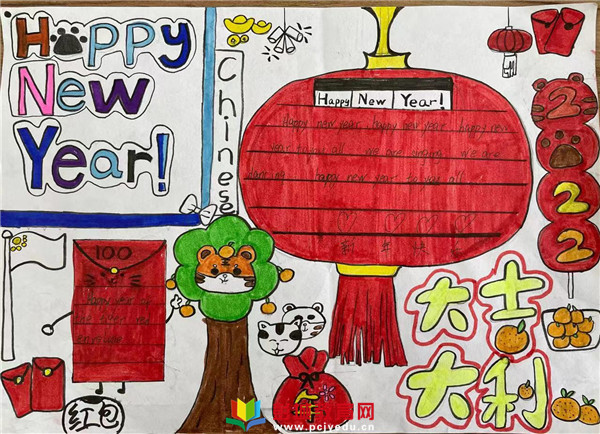 Happy
New
Year!
Chinese
Happy New Year!
Happy new year happy new year happy new
year to you all we are singing we are
dancing happy new year to you all
100
Happy year
one
envelope
红包
2
2
2
大吉
大利
www.pcjyedu.cn